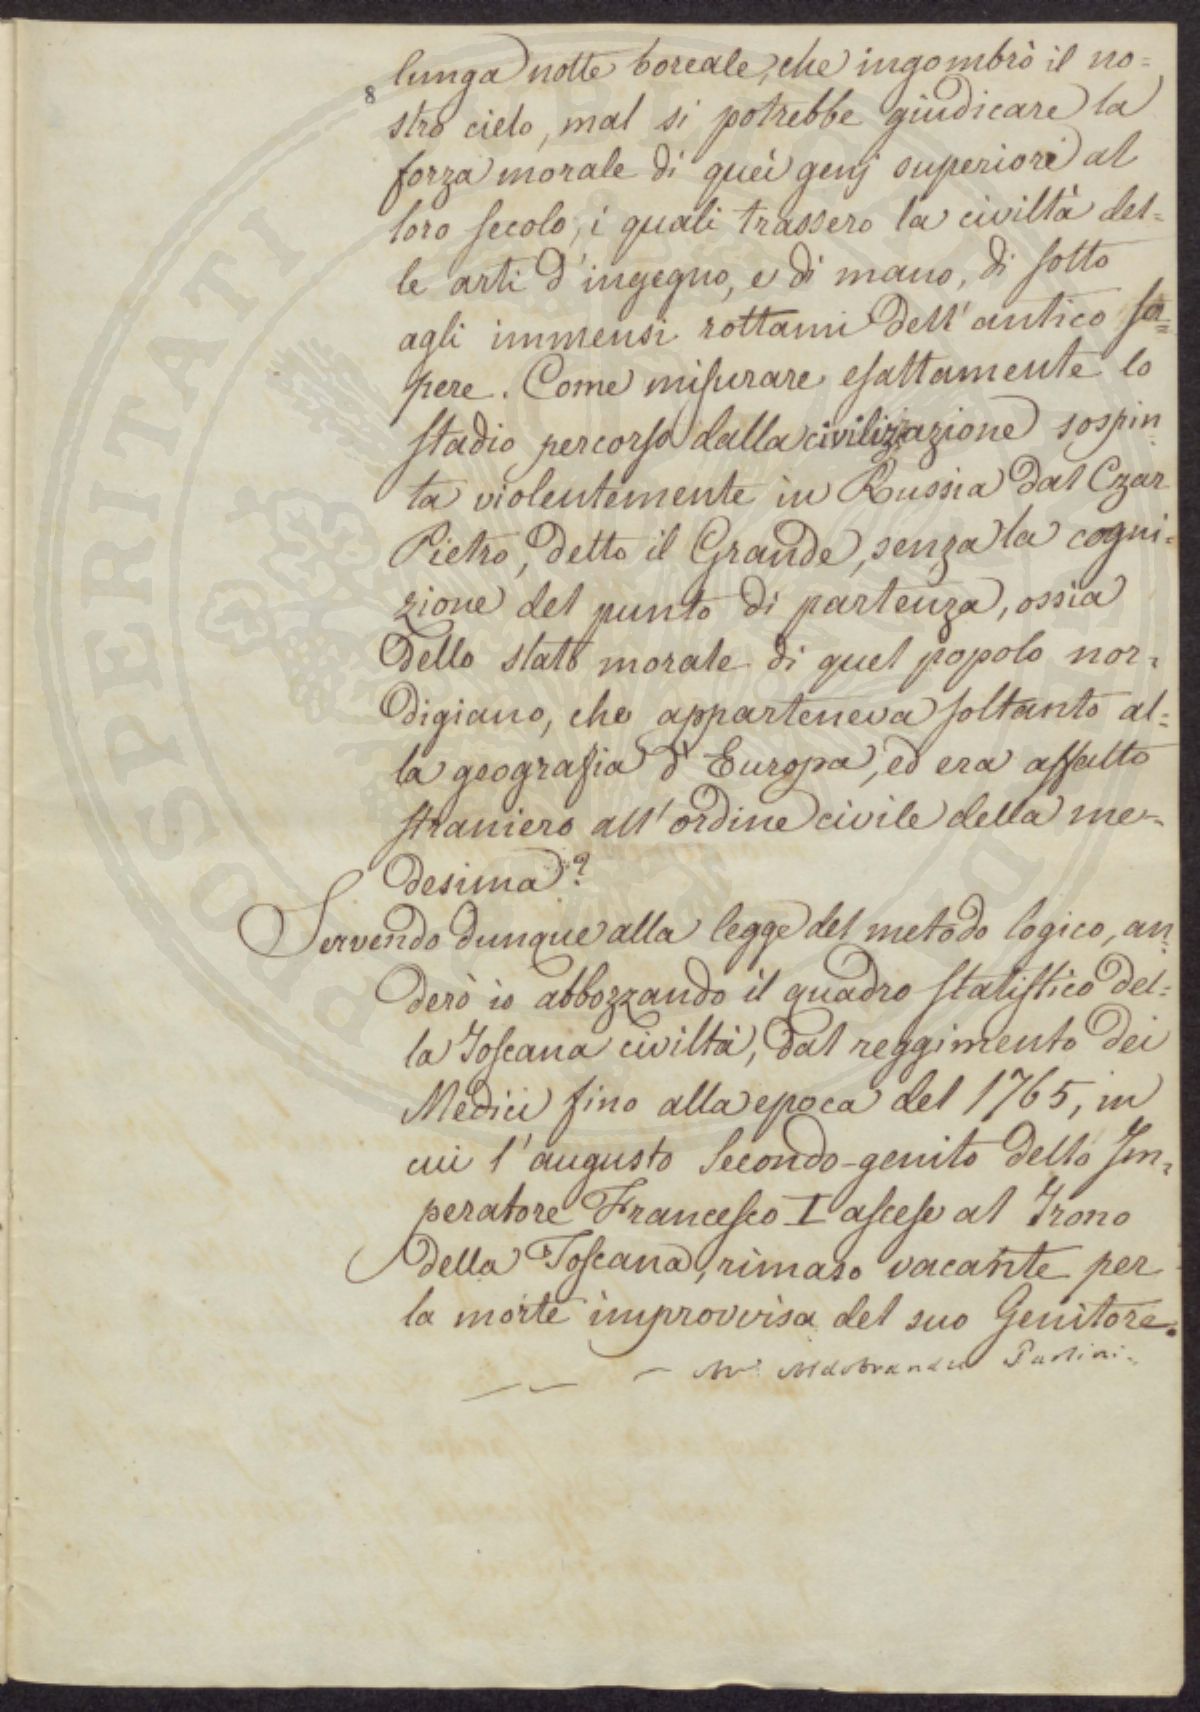 lunga notte boreale, che ingombrò il no=
8
stro cielo, mal si potrebbe giudicare la
forza morale di quei genj superiori al
loro secolo, i quali trassero la civiltà del=
le arti d'ingegno, e di mano, di sotto
agli immensi rottami dell'antico sa=
pere. Come misurare esattamente lo
stadio percorso dalla civilizzazione sospin=
ta violentemente in Russia dal Czar
Pietro, detto il Grande, senza la cogni=
zione del punto di partenza, ossia
dello stato morale di quel popolo nor=
digiano, che apparteneva soltanto al=
la geografia d'Europa, ed era affatto
straniero all'ordine civile della me=
desima?
Servendo dunque alla legge del metodo logico, an=
derò io abbozzando il quadro statistico del=
la Toscana civiltà, dal reggimento dei
Medici fino alla epoca del 1765, in
cui l'augusto Secondo-genito dello Im=
peratore Francesco I ascese al Trono
della Toscana, rimaso vacante per
la morte improvvisa del suo Genitore.
Aldobrando Paolini
PROSPERITATI PUBLICAE